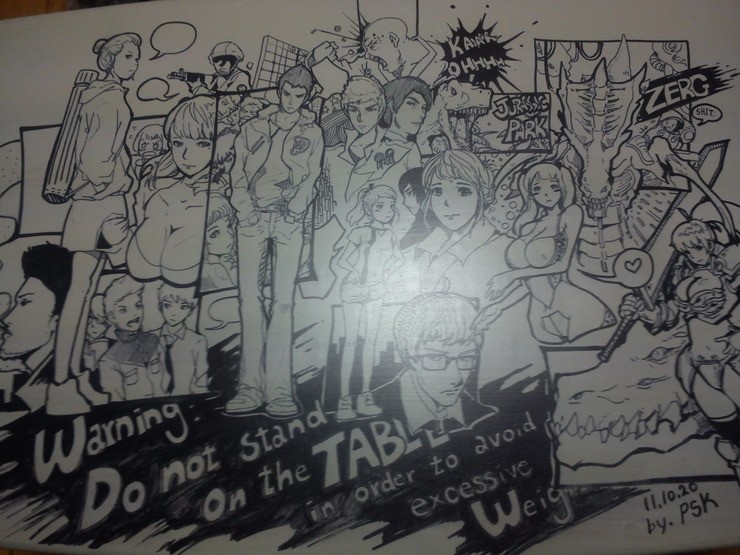 OHHHH
JURASSIC
PARK
ZERG
SHIT.
Warning:
Do not stand
on the TABLE
in order to avoid
excessive
Weig
11.10.20
by. PSK